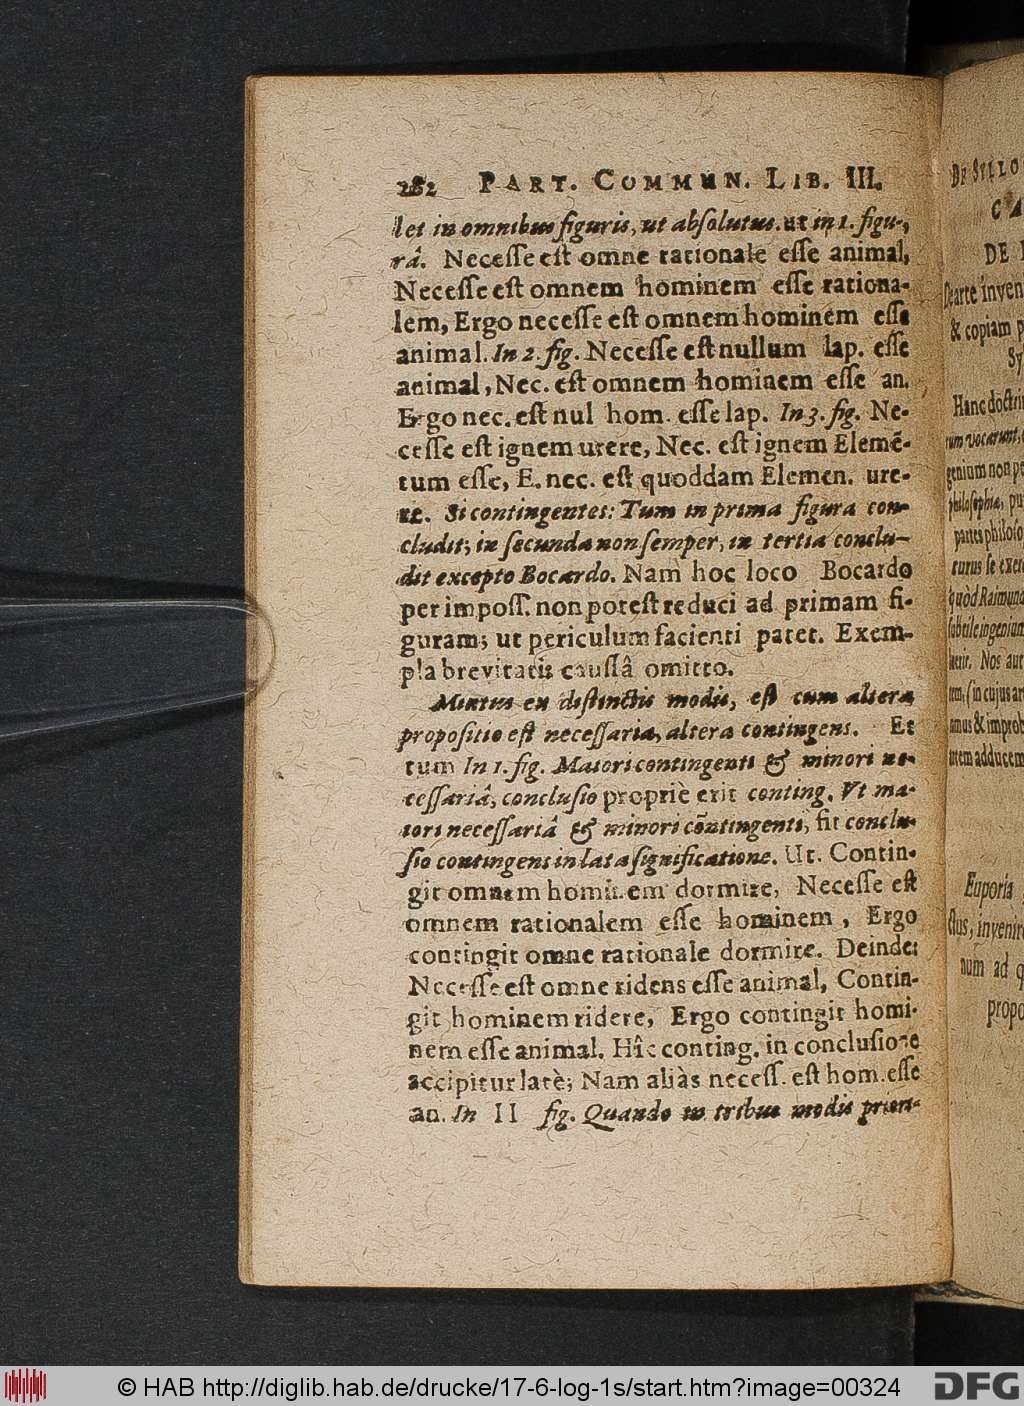 282 PART. COMMUN. LIB. III.
let in omnibus figuris, ut absolutus. ut in 1. figu-
râ. Necesse est omne rationale esse animal,
Necesse est omnem hominem esse rationa-
lem, Ergo necesse est omnem hominem esse
animal. In 2. fig. Necesse est nullum lap. esse
animal, Nec. est omnem hominem esse an.
Ergo nec. est nul hom. esse lap. In 3. fig. Ne-
cesse est ignem urere, Nec. est ignem Elemē-
tum esse, E. nec. est quoddam Elemen. ure-
re. Si contingentes: Tum in prima figura con-
cludit; in secunda non semper, in tertia conclu-
dit excepto Bocardo. Nam hoc loco Bocardo
per imposs. non potest reduci ad primam fi-
guram; ut periculum facienti patet. Exem-
pla brevitatis caussâ omitto.
Mixtus ex distinctis modis, est cum altera
propositio est necessaria, altera contingens. Et
tum In 1. fig. Maiori contingenti & minori ne-
cessariâ, conclusio propriè erit conting. Vt ma-
iori necessariâ & minori cōntingenti, fit conclu-
sio contingens in lata significatione. Ut. Contin-
git omnem hominem dormire, Necesse est
omnem rationalem esse hominem, Ergo
contingit omne rationale dormire. Deinde:
Necesse est omne ridens esse animal, Contin-
git hominem ridere, Ergo contingit homi-
nem esse animal. Hîc conting. in conclusione
accipitur latè; Nam aliàs necess. est hom. esse
an. In II fig. Quando in tribus modis priori-
DE SYLLO
CA
DE
De arte inven
& copiam p
Sy
Hanc doctrin
rum vocarunt,
genium non po
philosophia, pu
partes philoso
turus se exer
quòd Raimund
subtile ingenium
Nos aut
tem, (in cujus ar
amus & improb
adducem
Euporia
ctus, invenire
num ad q
propo
© HAB http://diglib.hab.de/drucke/17-6-log-1s/start.htm?image=00324
DFG